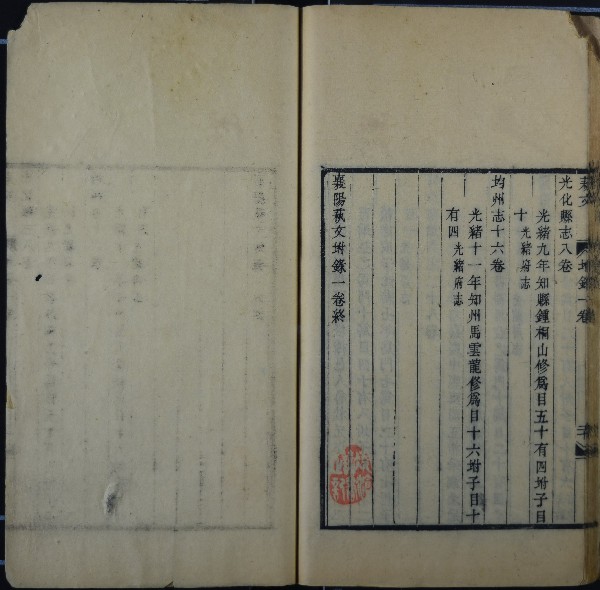 光化縣志八卷
光緒九年知縣鍾桐山修爲目五十有四坿子目
十 光緒府志
均州志十六卷
光緒十一年知州馬雲龍修爲目十六坿子目十
有四 光緒府志
襄陽萟文坿錄一卷終